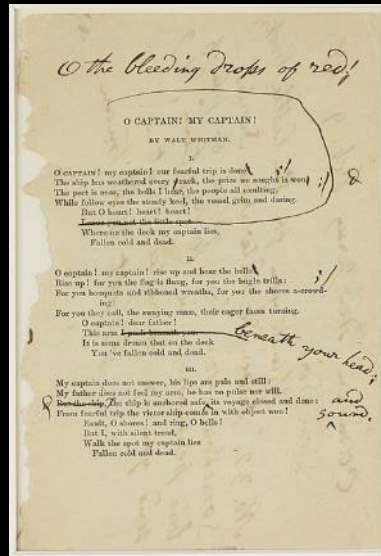 O the bleeding drops of red;
O CAPTAIN! MY CAPTAIN!
BY WALT WHITMAN.
I.
O CAPTAIN! my captain! our fearful trip is done;
The ship has weathered every wrack, the prize we sought is won; &
The port is near, the bells I hear, the people all exulting,
While follow eyes the steady keel, the vessel grim and daring.
But O heart! heart! heart!
Leave you not the little spot
Where on the deck my captain lies,
Fallen cold and dead.
II.
O captain! my captain! rise up and hear the bells;
Rise up! for you the flag is flung, for you the bugle trills:
For you bouquets and ribboned wreaths, for you the shores a-crowd-
ing:
For you they call, the swaying mass, their eager faces turning.
O captain! dear father!
This arm I push beneath you beneath your head;
It is some dream that on the deck
You 've fallen cold and dead.
III.
My captain does not answer, his lips are pale and still:
My father does not feel my arm, he has no pulse nor will.
But the ship, The ship is anchored safe, its voyage closed and done: and sound,
From fearful trip the victor ship comes in with object won!
Exult, O shores! and ring, O bells!
But I, with silent tread,
Walk the spot my captain lies
Fallen cold and dead.